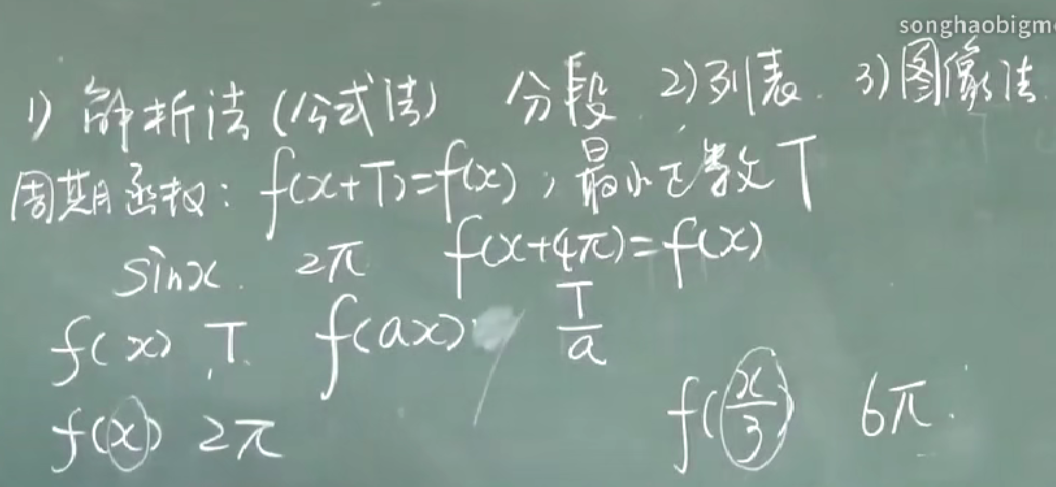 songhaobigm
1) 解析法(公式法) 分段 2)列表. 3)图像法
周期函数: f(x+T)=f(x), 最小正数 T
sinx. 2π f(x+4π)=f(x)
f(x), T. f(ax) T/a
f(x) 2π f(x/3) 6π.